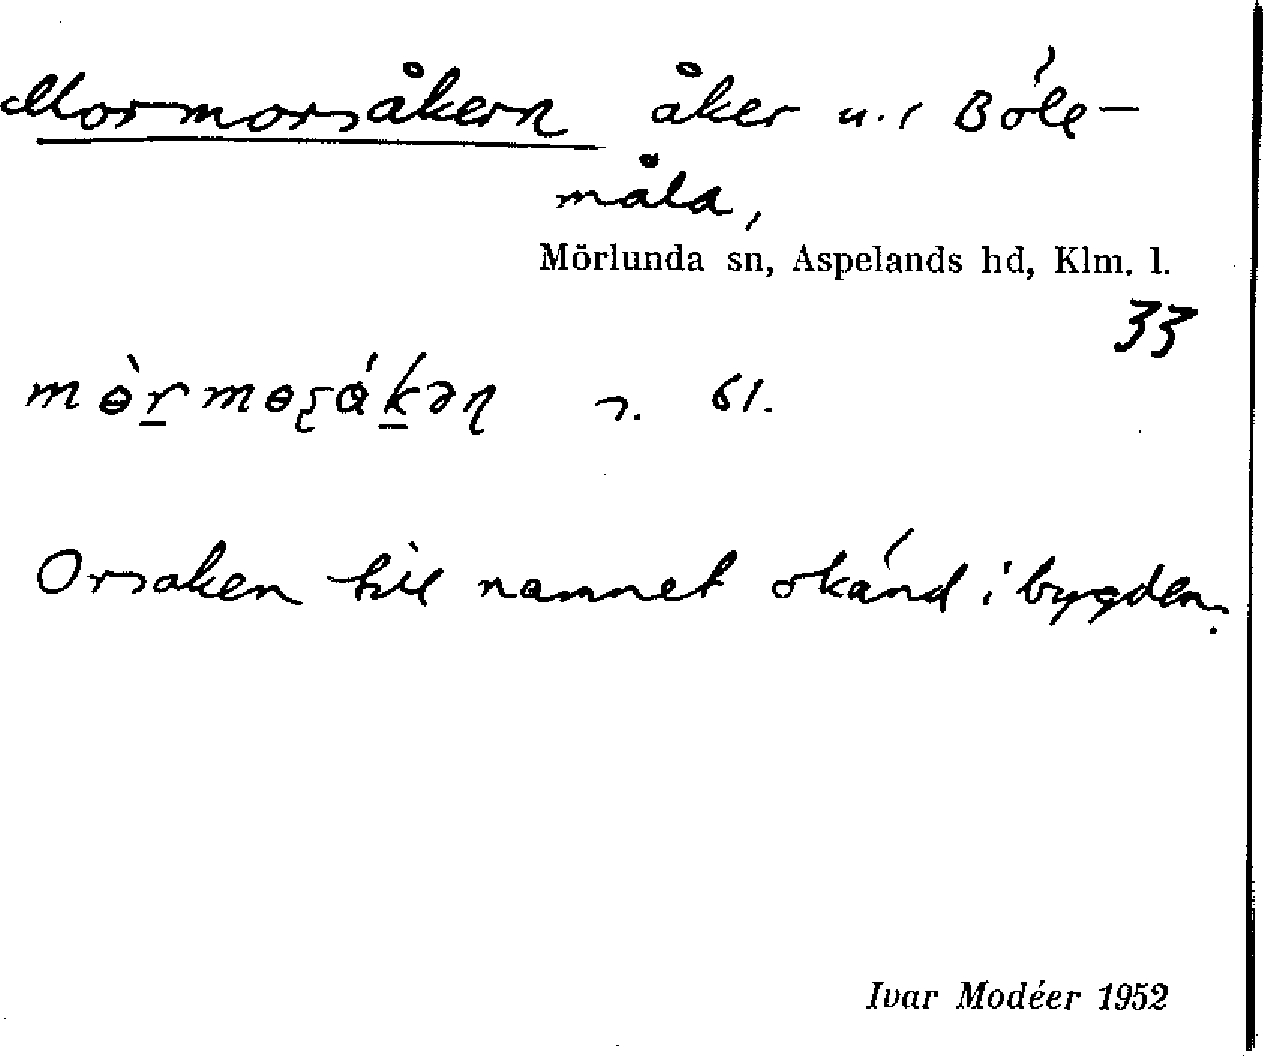 Mormorsåkern åker u.r Böle-
måla,
Mörlunda sn, Aspelands hd, Klm. l.
33
61.
Orsaken till namnet okänd i bygden.
Ivar Modéer 1952